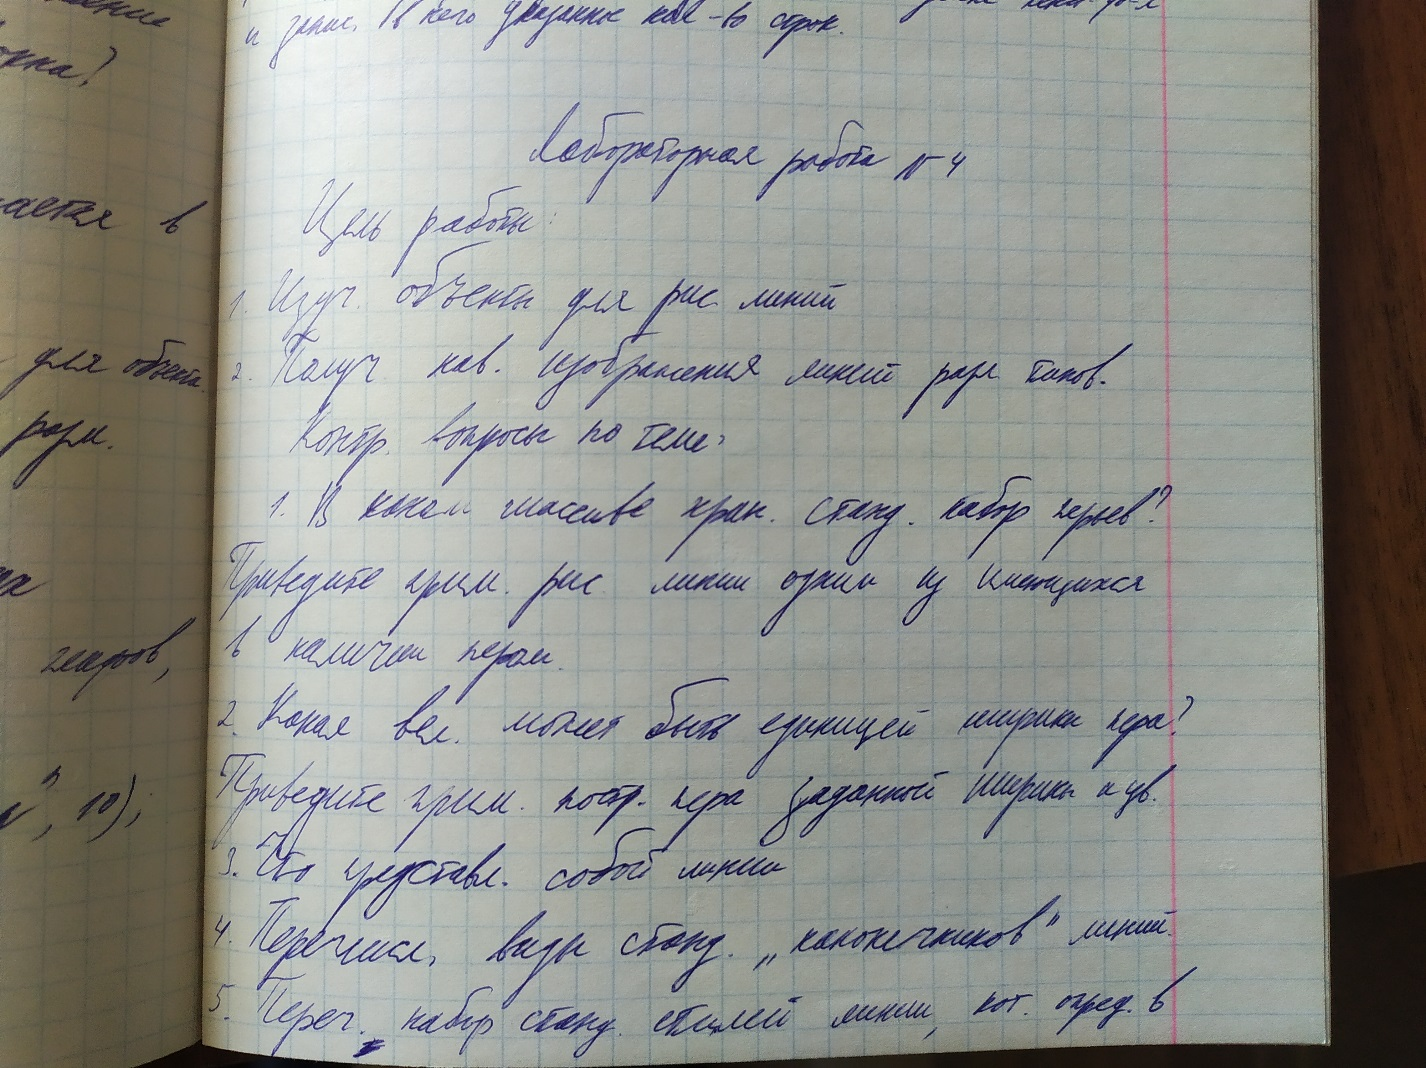 и запис. в него указанное кол-во строк.
Лабораторная работа №4
Цель работы:
1. Изуч. объекты для рис линий
2. Получ. нав. изображения линий разл типов.
Контр. вопросы по теме:
1. В каком массиве хран. станд. набор перьев?
Приведите прим. рис. линии одним из имеющихся
в наличии пером.
2. Какая вел. может быть единицей ширины пера?
Приведите прим. постр. пера заданной ширины и цв.
3. Что представл. собой линии
4. Перечисл. виды станд. „наконечников" линий.
5. Переч. набор станд. стилей линии, кот. опред. в
окна?
ается в
для объекта.
разм.
", 10);